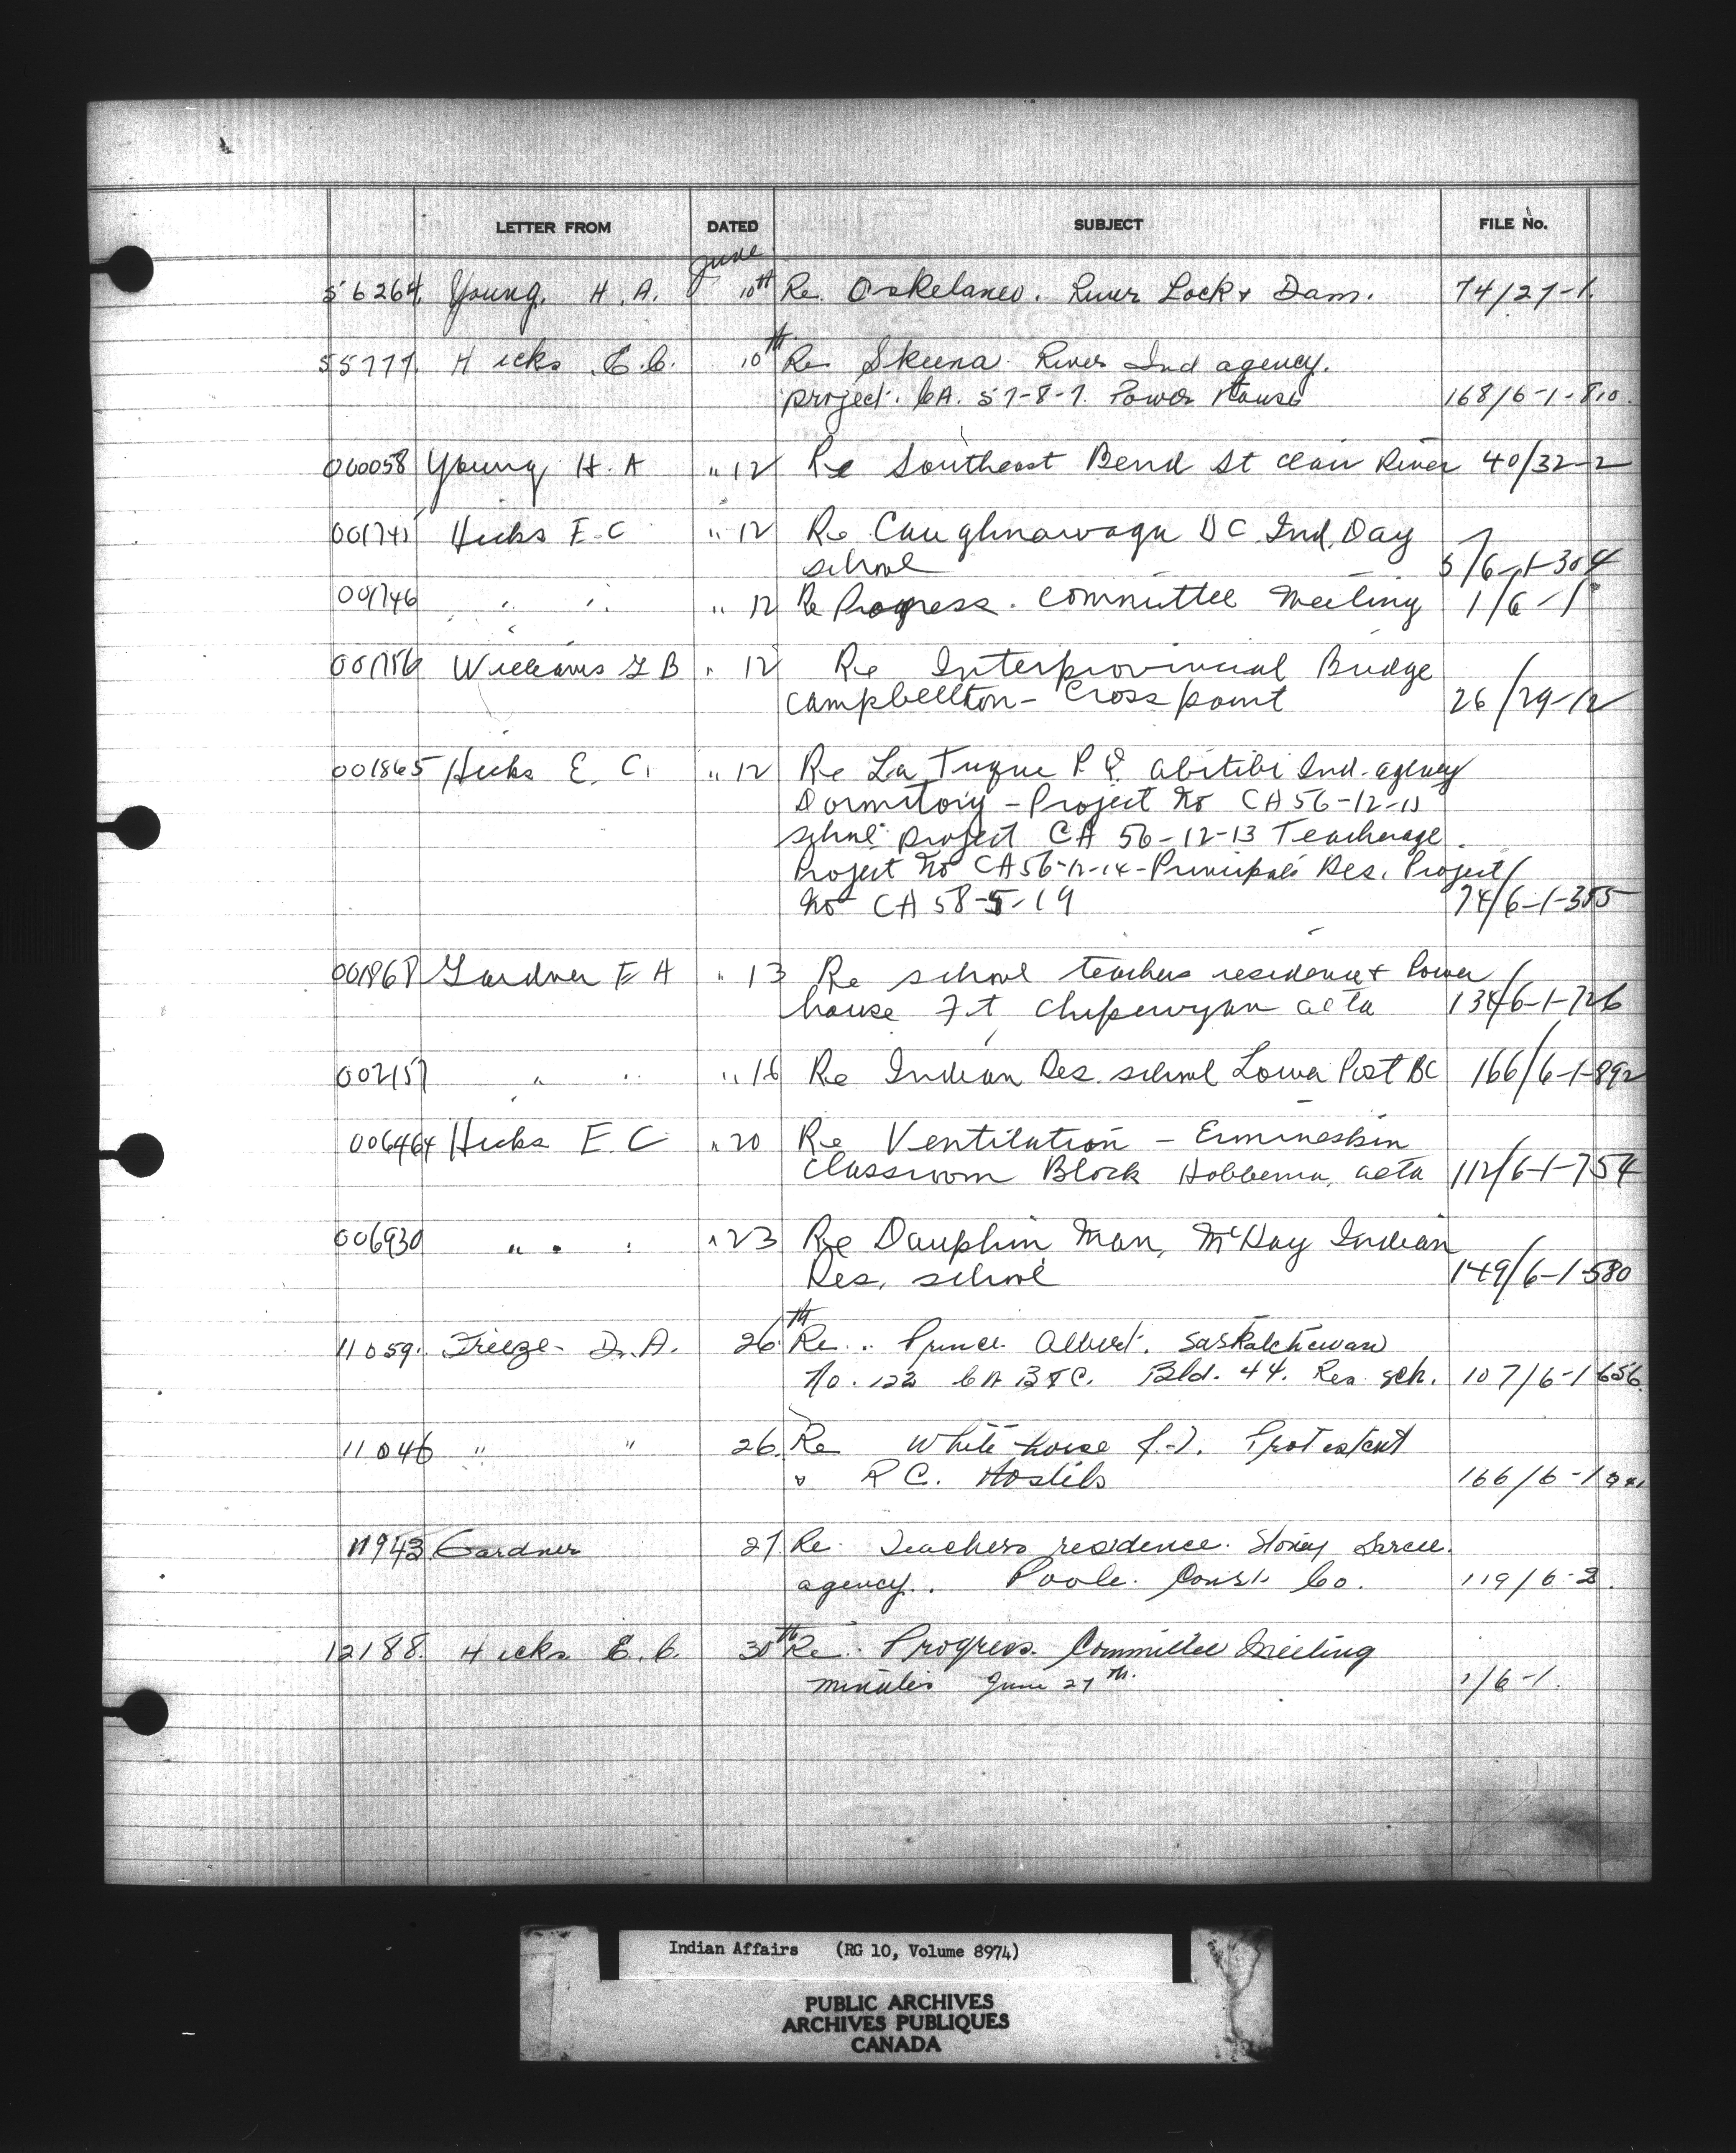 LETTER FROM DATED SUBJECT FILE No.
June
56264 Young. H. A. 10th Re. Oskelaneo. River Lock & Dam. 74/27-1.
55777. Hicks E.C. 10th Re Skeena River Ind agency.
project. CA. 57-8-7. Power House 168/6-1-810.
000058 Young H. A " 12 Re Southeast Bend St Clair River 40/32-2
001745 Hicks E. C " 12 Re Caughnawaga DC Ind. Day
school 5/6-1-304
001746 " " " 12 Re Progress. Committee Meeting 1/6-1
001756 Williams G B " 12 Re Interprovincial Bridge
Campbellton - Cross point 26/29-12
001865 Hicks E. C. " 12 Re La Tuque P.Q. Abitibi Ind. agency
Dormitory - Project No CA 56-12-11
school project CA 56-12-13 Teacherage
Project No CA 56-12-14 - Principals Res. Project
No CA 58-5-19 74/6-1-355
001868 Gardner E A " 13 Re school teachers residence & Power
house Ft Chipewyan alta 134/6-1-726
002157 " " " 16 Re Indian Res. school Lower Post BC 166/6-1-892
006464 Hicks E. C " 20 Re Ventilation - Ermineskin
Classroom Block Hobbema, alta 112/6-1-754
006930 " " " " 23 Re Dauphin Man, McKay Indian
Res. school 149/6-1-580
11059. Freeze- D. A. 26th Re. Prince Albert. Saskatchewan
No. 122 CA B&C. Bld. 44. Res. sch. 107/6-1 656.
11046 " " 26. Re White horse Y.T. Protestent
& R C. Hostils 166/6-1
11943 Gardner 27. Re. Teachers residence. Stoney Sarcee.
agency. Poole. Const. Co. 119/6-2.
12188. Hicks E. C. 30th Re. Progress. Committee Meeting
minutes June 27th. 1/6-1.
Indian Affairs (RG 10, Volume 8974)
PUBLIC ARCHIVES
ARCHIVES PUBLIQUES
CANADA